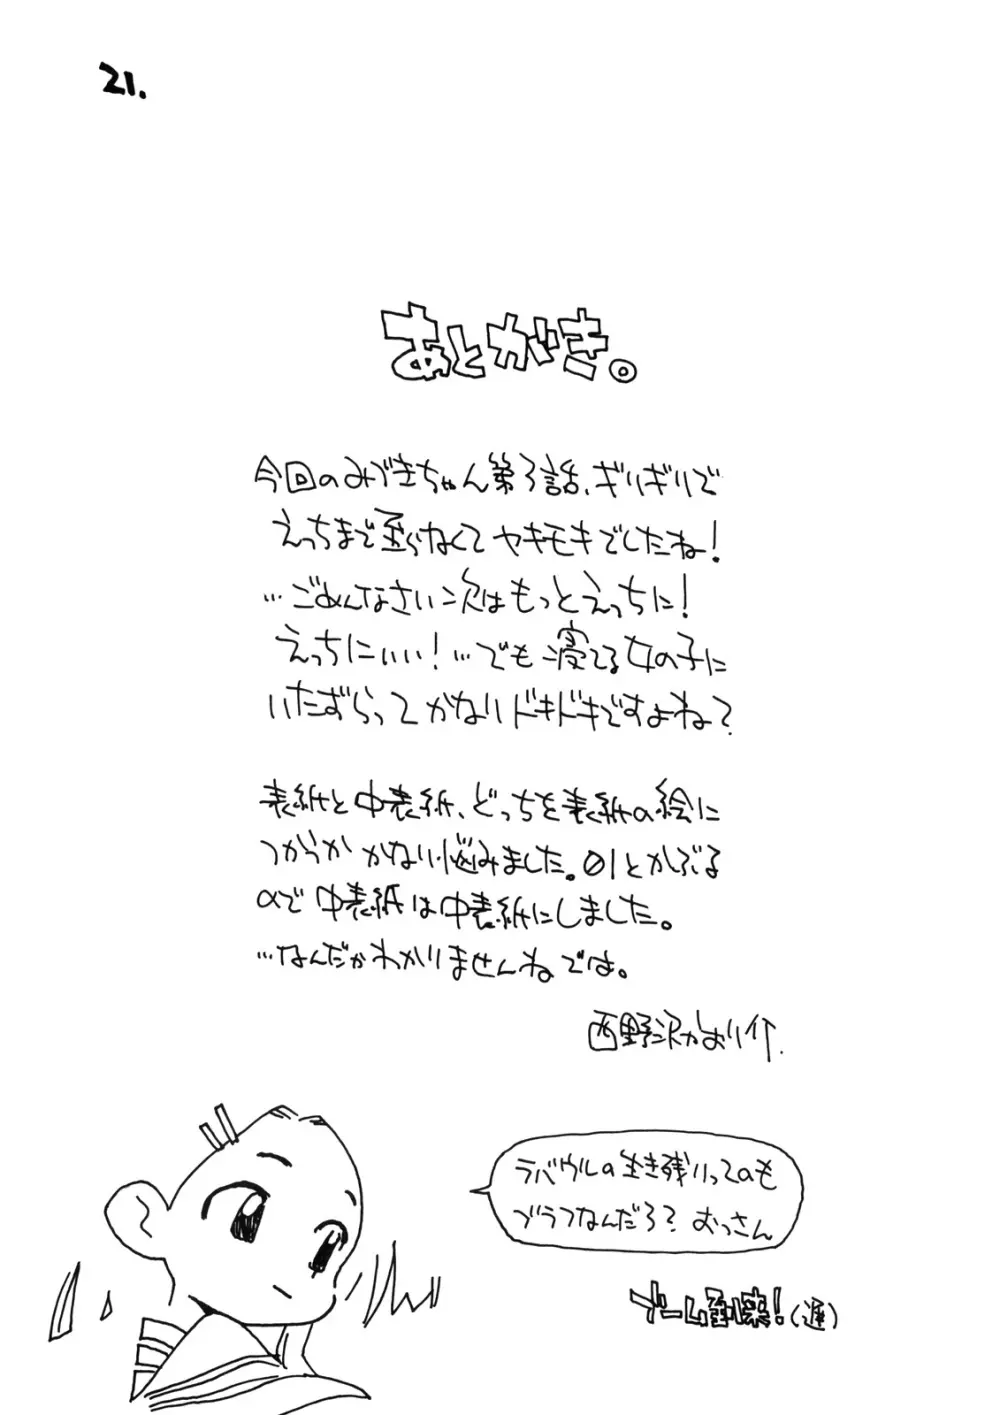 21.
あとがき。
今回のみづきちゃん第3話、ギリギリで
えっちまで至らなくてヤキモキでしたね!
…ごめんなさい次はもっとえっちに!
えっちにぃぃ!…でも寝てる女の子に
いたずらってかなりドキドキですよね?
表紙と中表紙、どっちを表紙の絵に
つかうかかなり悩みました。01とかぶる
ので中表紙は中表紙にしました。
…なんだかわかりませんねでは。
西野沢かおり介.
ラバウルの生き残りってのも
ブラフなんだろ? おっさん
ブーム到来!(遅)